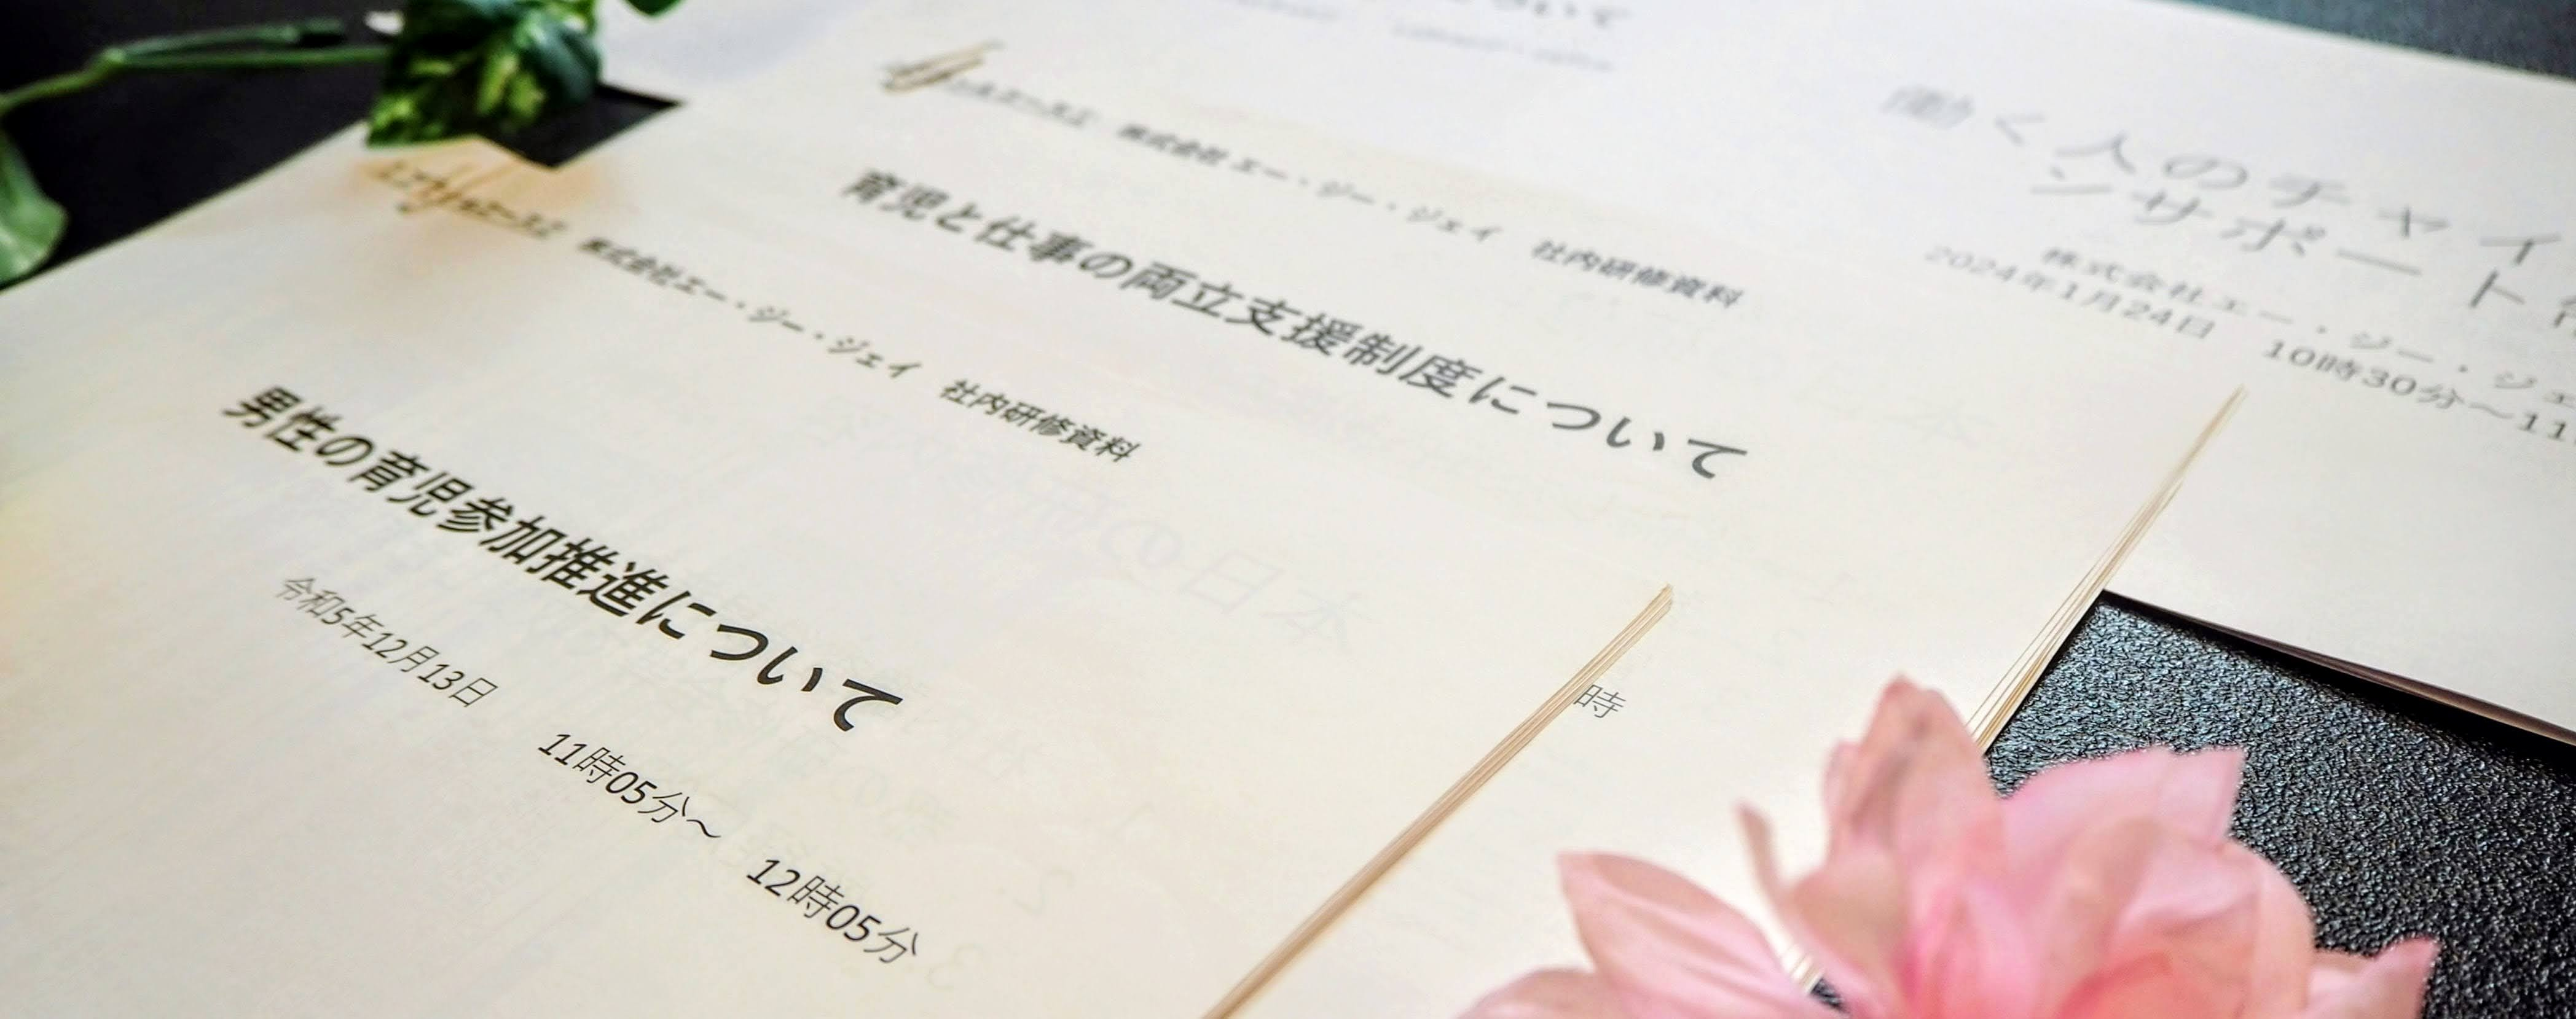 株式会社エー・ジー・ジェイ 社内研修資料
男性の育児参加推進について
令和5年12月13日 11時05分～ 12時05分
株式会社 エー・ジー・ジェイ 社内研修資料
育児と仕事の両立支援制度について
時
働く人のチャイ
ンサポート
株式会社エー・ジー・ジェ
2024年1月24日 10時30分～11
ついて